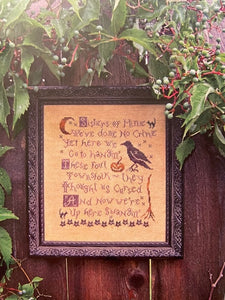 Sisters of Mine
We've done No Crime
Yet here we
Go to hangin'
These fool
Townsfolk - they
Thought us Cursed
And Now we're
Up here Swangin'